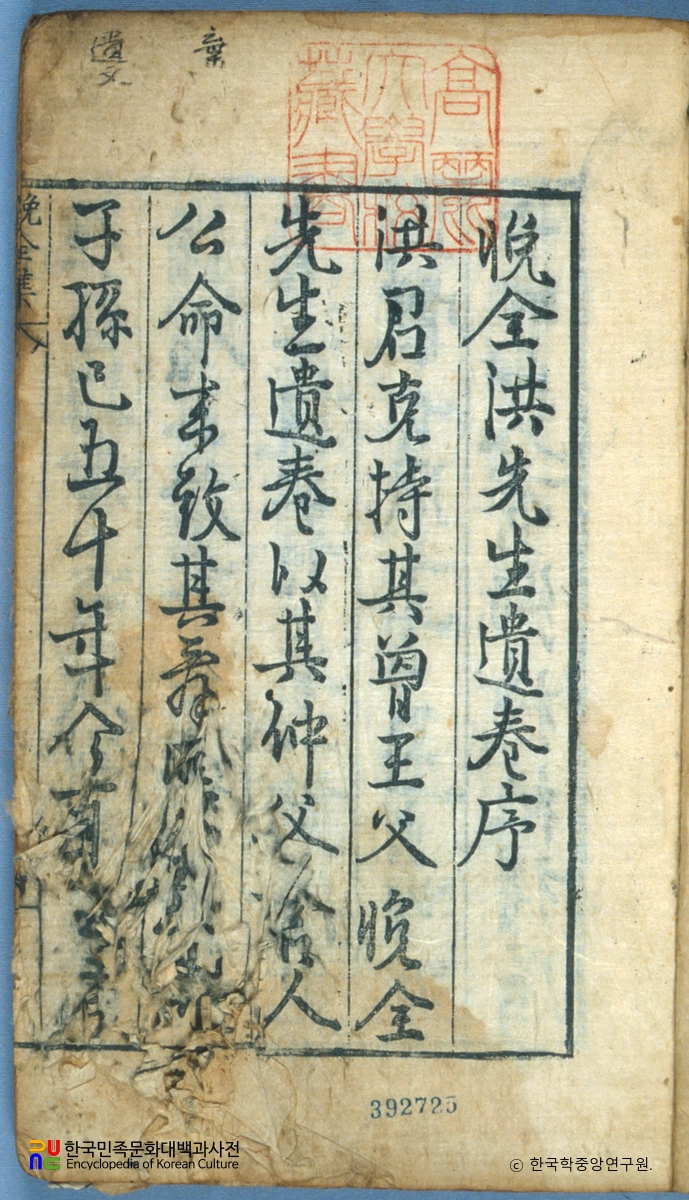 棄
遺文
高麗大學校藏書
晚全洪先生遺卷序
洪君克持其曾王父晚全
先生遺卷以其仲父舍人
公命來致其辭
子孫已五十年今
晚全集
392725
한국민족문화대백과사전
Encyclopedia of Korean Culture
© 한국학중앙연구원.